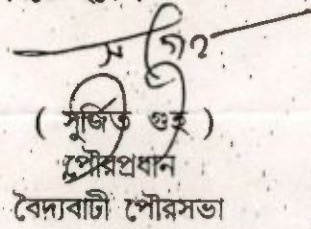 ( সুর্জিত গুহ )
পৌরপ্রধান
বৈদ্যবাটী পৌরসভা